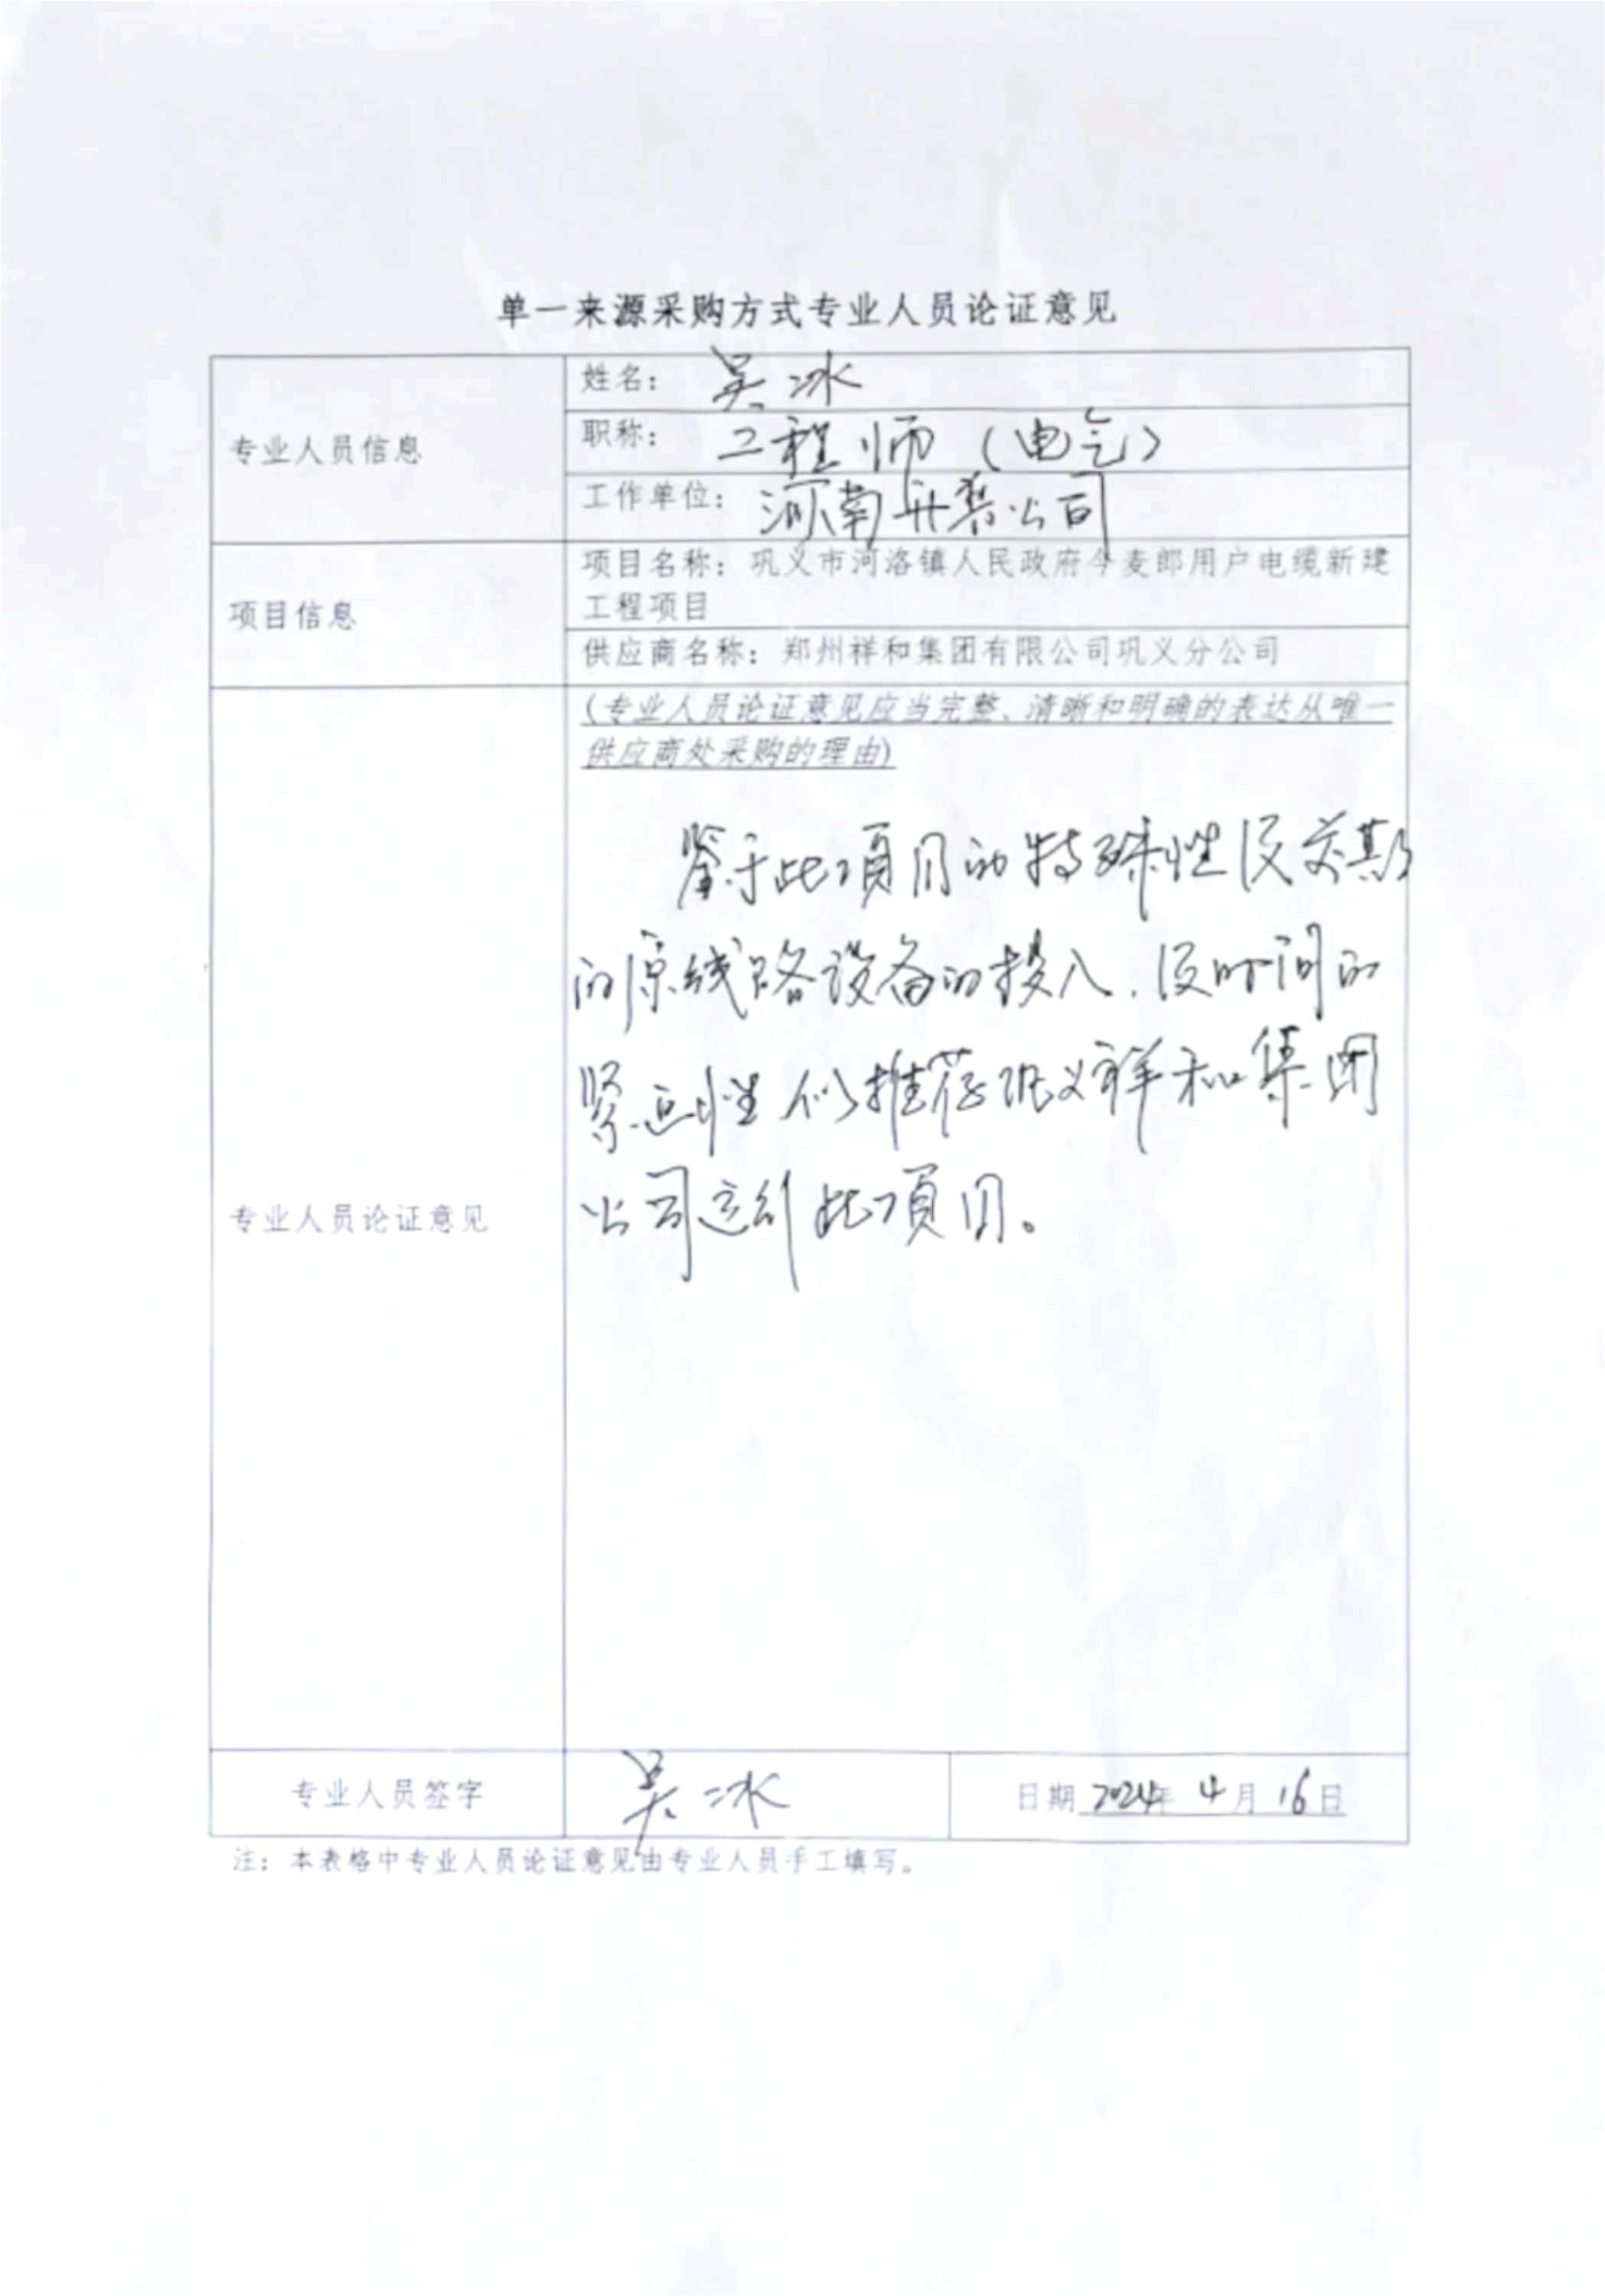 单一来源采购方式专业人员论证意见
专业人员信息
姓名： 吴冰
职称： 工程师（电气）
工作单位： 河南 公司
项目信息
项目名称：巩义市河洛镇人民政府今麦郎用户电缆新建
工程项目
供应商名称：郑州祥和集团有限公司巩义分公司
专业人员论证意见
(专业人员论证意见应当完整、清晰和明确的表达从唯一
供应商处采购的理由)
鉴于此项目的特殊性及前期
的原线路设备的投入，及时间的
紧迫性 推荐巩义祥和集团
公司 此项目。
专业人员签字
吴冰
日期 2024年 4月 16日
注：本表格中专业人员论证意见由专业人员手工填写。